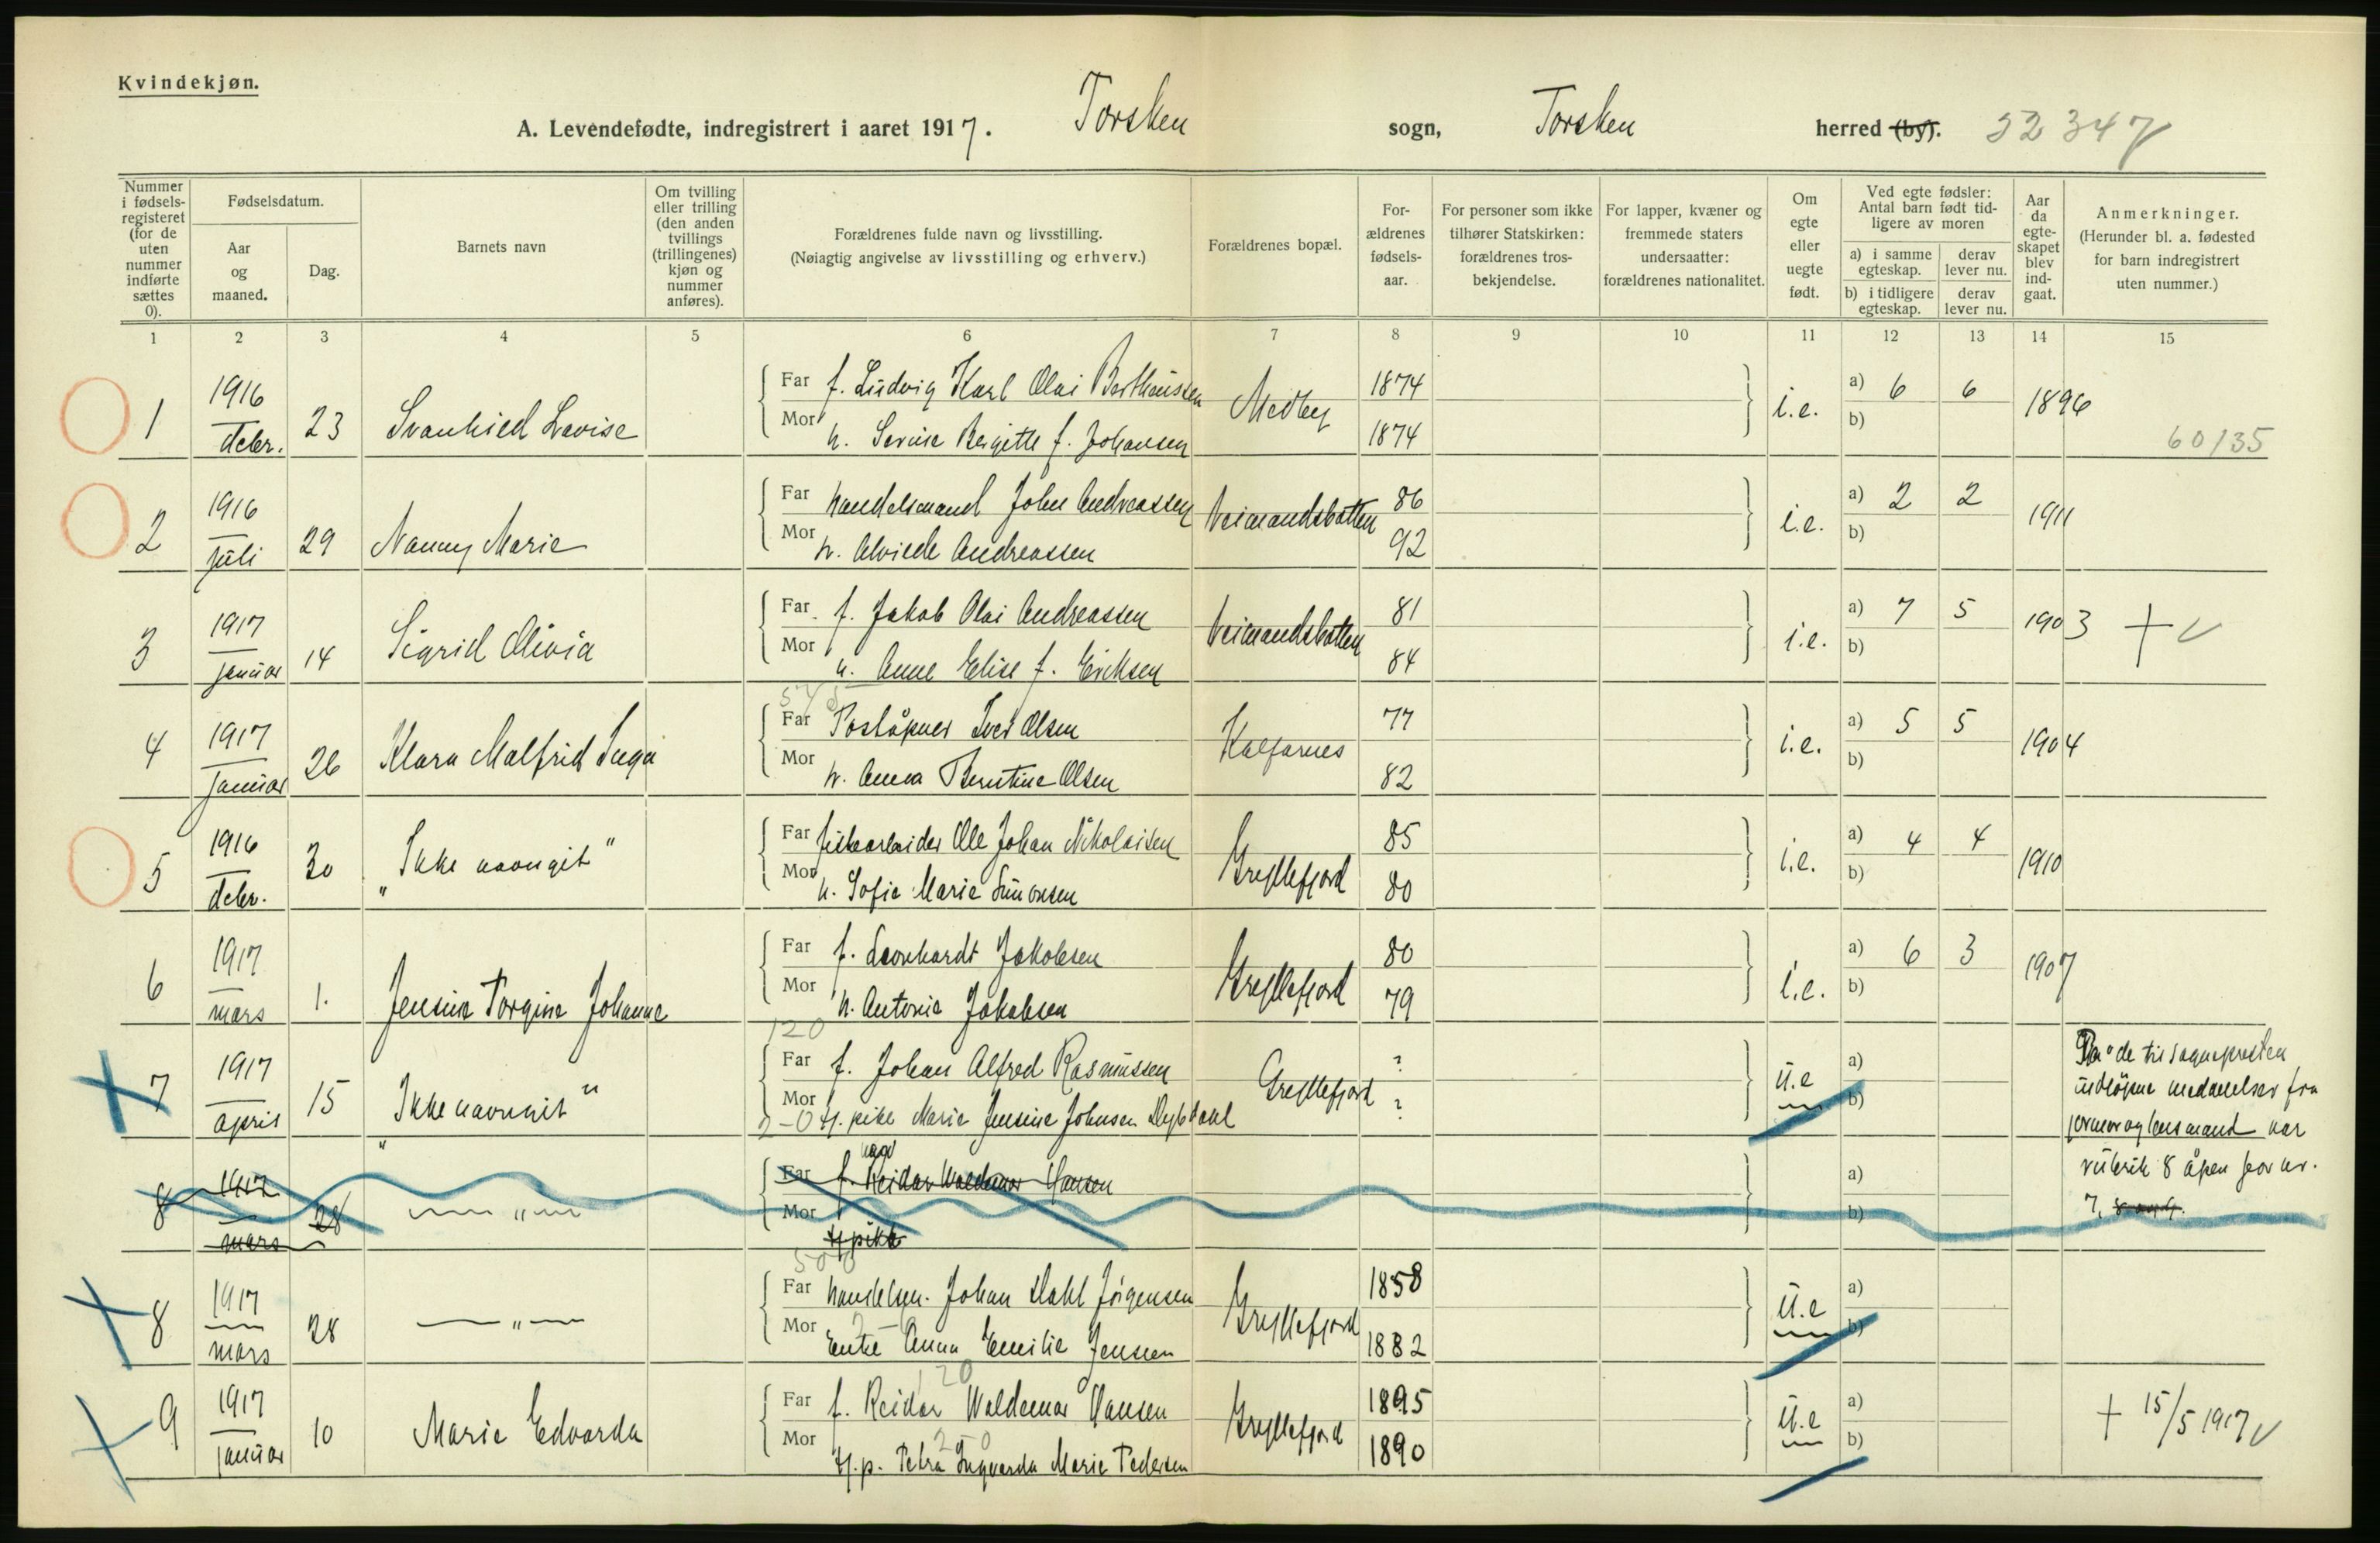 Kvindekjøn.
A. Levendefødte, indregistrert i aaret 1917. Torsken sogn, Torsken herred (by). 52 347
Nummer i fødsels-registeret (for de uten nummer indførte sættes 0).
Fødselsdatum.
Aar og maaned.
Dag.
Barnets navn
Om tvilling eller trilling (den anden tvillings (trillingenes) kjøn og nummer anføres).
Forældrenes fulde navn og livsstilling.
(Nøiagtig angivelse av livsstilling og erhverv.)
Forældrenes bopæl.
For-ældrenes fødsels-aar.
For personer som ikke tilhører Statskirken: forældrenes tros-bekjendelse.
For lapper, kvæner og fremmede staters undersaatter: forældrenes nationalitet.
Om egte eller uegte født.
Ved egte fødsler: Antal barn født tid-ligere av moren
a) i samme egteskap.
derav lever nu.
b) i tidligere egteskap.
derav lever nu.
Aar da egte-skapet blev ind-gaat.
Anmerkninger.
(Herunder bl. a. fødested for barn indregistrert uten nummer.)
1 2 3 4 5 6 7 8 9 10 11 12 13 14 15
1 1916 decbr. 23 Svanhied Lovise
Far f. Ludvig Karl Olai Bertheussen Medby 1874 i.e. a) 6 6 1896
Mor h. Bergitte f. Johansen 1874 b)
60/35
2 1916 juli 29 Nanny Marie
Far handelsmand John Andreassen Veimandsbotten 86 i.e. a) 2 2 1911
Mor h. Alvilde Andreassen 92 b)
3 1917 januar 14 Sigrid Olivia
Far f. Jakob Olai Andreassen Veimandsbotten 81 i.e. a) 7 5 1903 + ✓
Mor h. Anne Elise f. Eriksen 84 b)
4 1917 januar 26 Klara Malfrid Inga
Far Poståpner Iver Olsen Kalfarnes 77 i.e. a) 5 5 1904
Mor h. Anna Berntine Olsen 82 b)
5 1916 decbr. 30 "Ikke navngit"
Far fiskearbeider Ole Johan Nikolaisen Gryllefjord 85 i.e. a) 4 4 1910
Mor h. Sofie Marie Simonsen 80 b)
6 1917 mars 1. Jensine Torgine Johanne
Far f. Leonhardt Jakobsen Gryllefjord 80 i.e. a) 6 3 1907
Mor h. Antonie Jakobsen 79 b)
120
7 1917 april 15 "Ikke navngit"
Far f. Johan Alfred Rasmussen Gryllefjord ? u.e a)
Mor tj. pike Marie Jensine Johnsen Dybdahl ? b)
2-0
På de til sognepresten
indløpne meddelelser fra
jormor og lensmand var
rubrik 8 åpen for nr.
7,
8 1917 mars 28 — " —
Far f. Reidar Waldemar Hansen a)
Mor tj pike b)
500
8 1917 mars 28 — " —
Far handelsm. Johan Dahl Jörgensen Gryllefjord 1858 u.e a)
Mor Enke Anna Emilie Jensen 1882 b)
120
9 1917 januar 10 Marie Edvarda
Far f. Reidar Waldemar Hansen Gryllefjord 1895 u.e a) + 15/5 1917 ✓
Mor tj.p. Petra Ingvarda Marie Pedersen 1890 b)
2-0